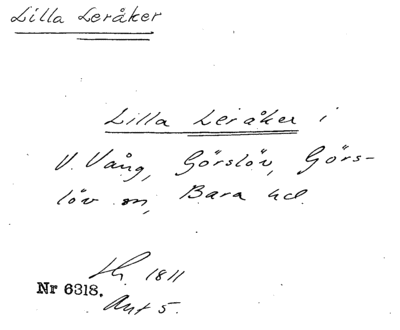 Lilla Leråker
Lilla Leråker i
V. Vång, Görslöv, Görs-
löv sn, Bara hd.
1811
Nr 6318.
Akt 5.